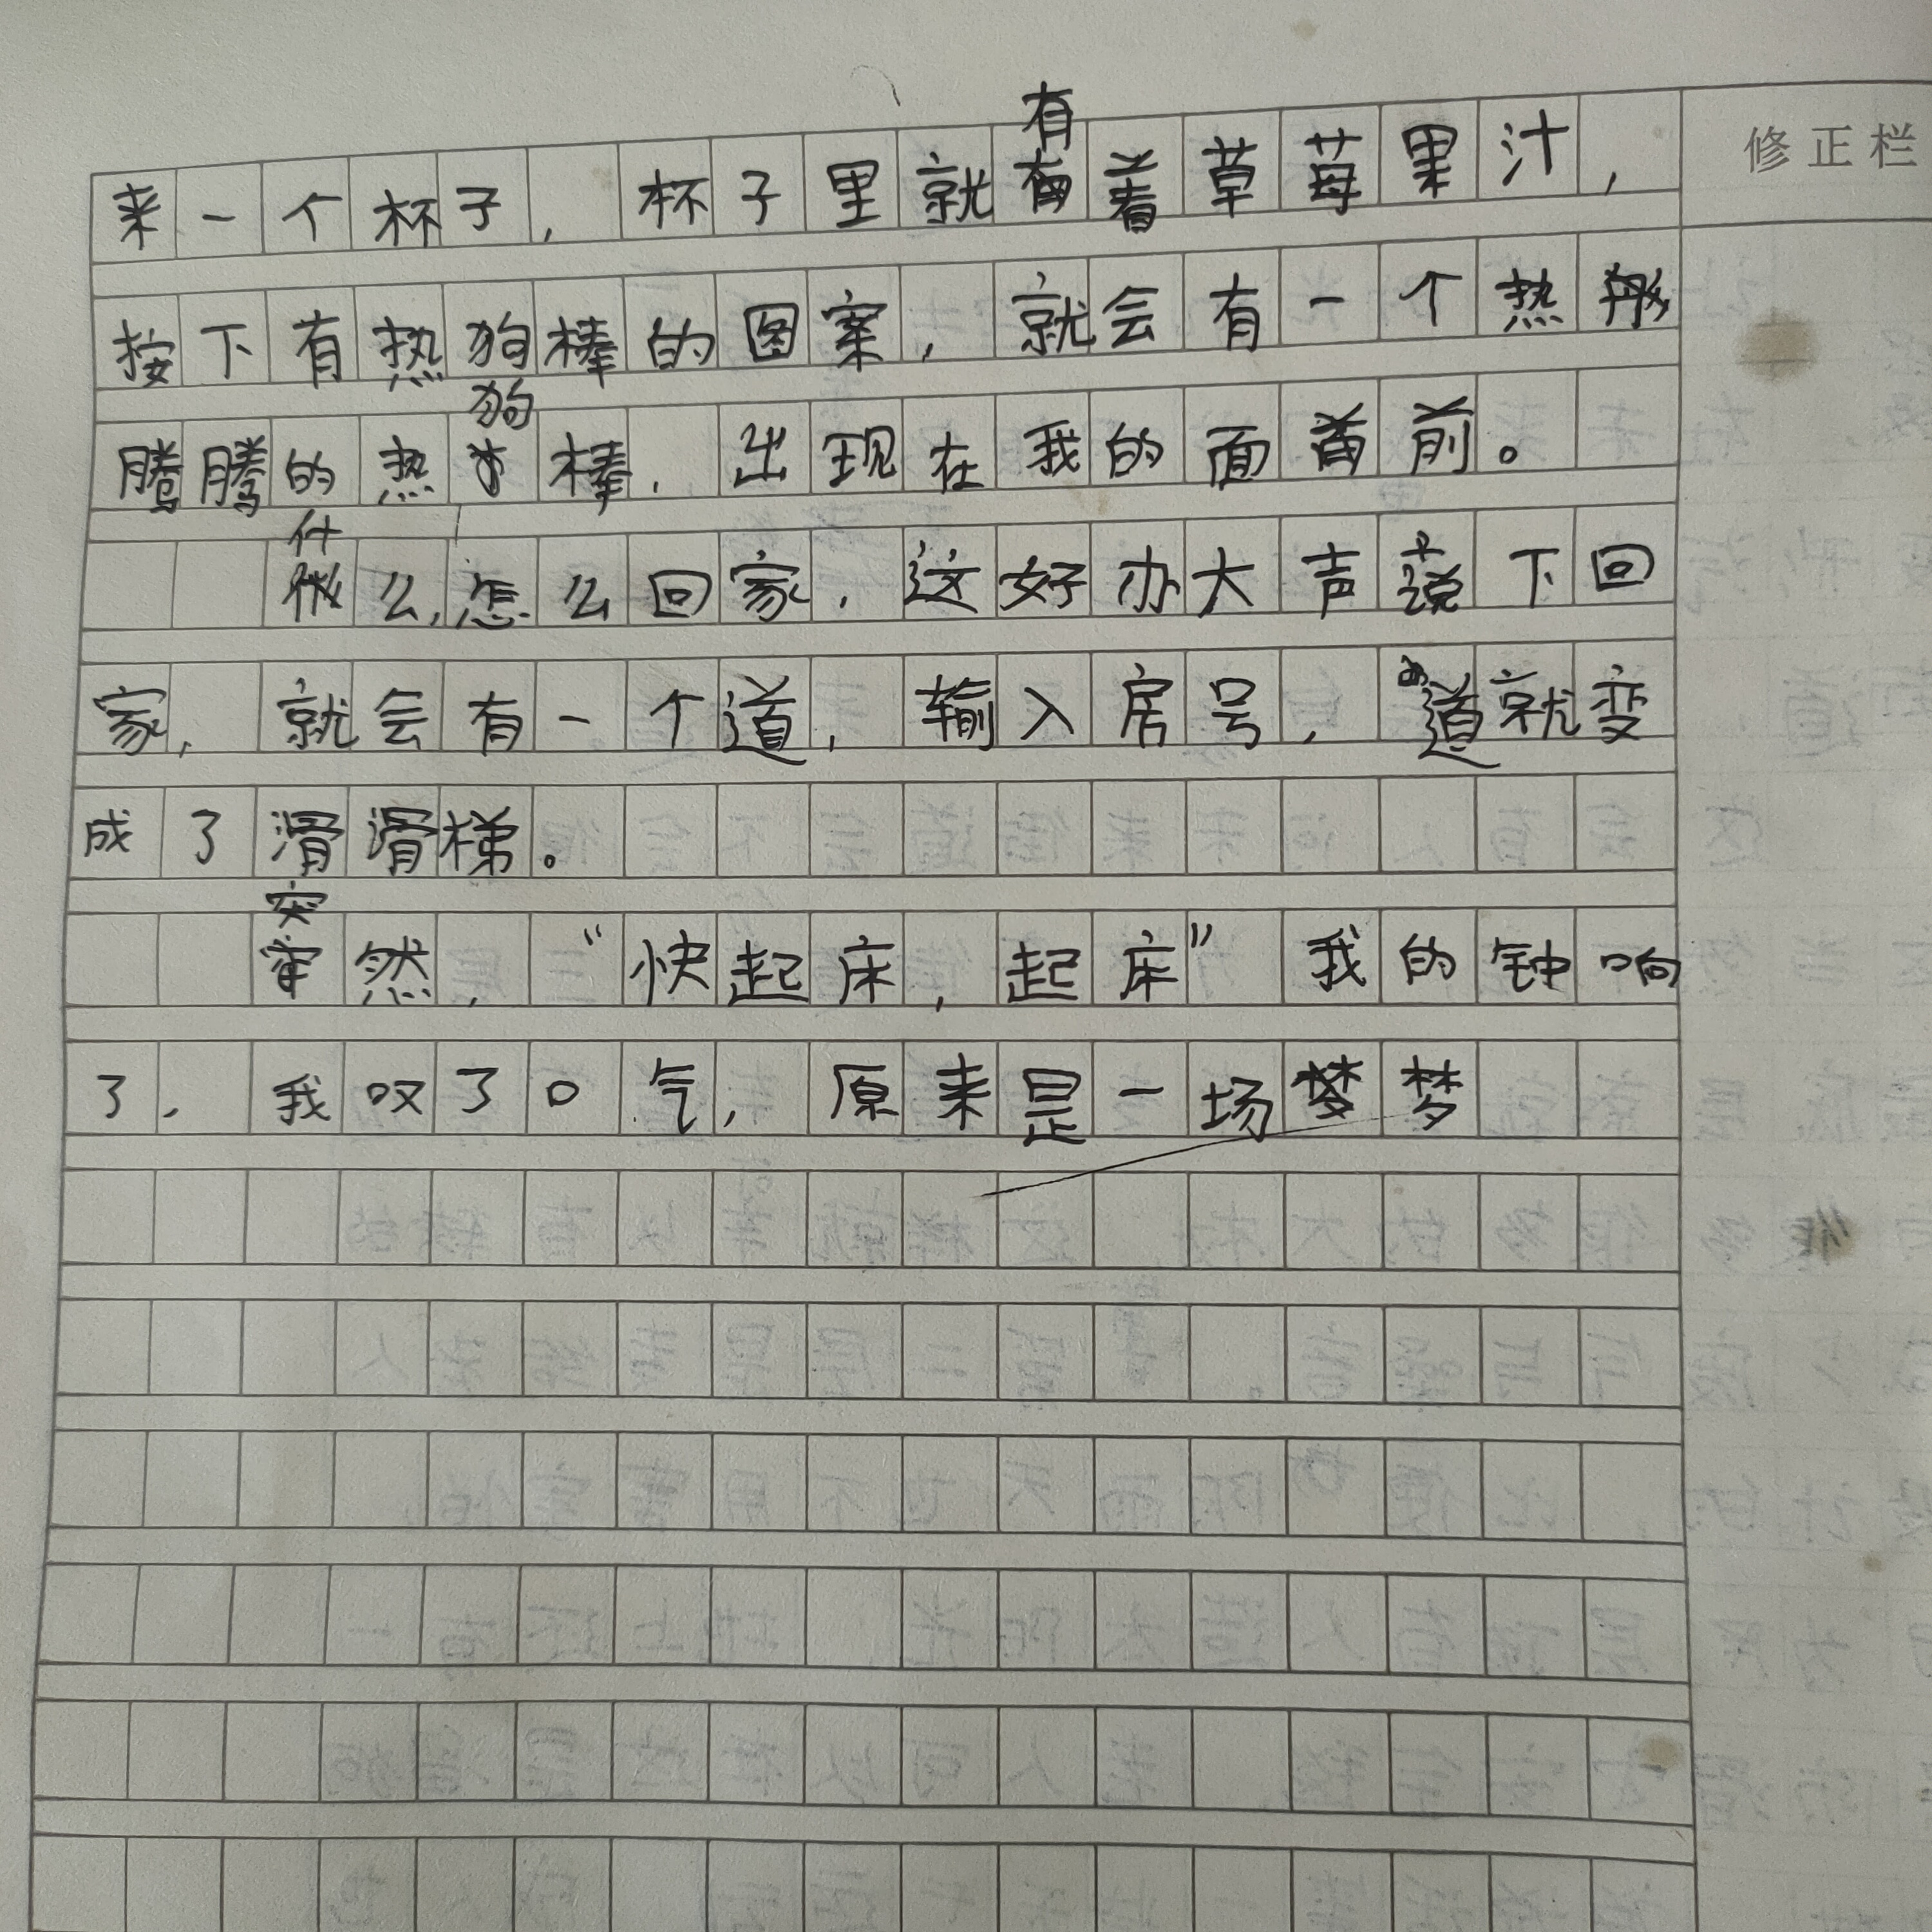 修正栏
来一个杯子，杯子里就有着草莓果汁，
按下有热狗棒的图案，就会有一个热
腾腾的热狗棒，出现在我的面前。
什么，怎么回家，这好办大声说下回
家，就会有一个道，输入房号，道就变
成了滑滑梯。
突然，“快起床，起床”我的钟响
了，我叹了口气，原来是一场梦